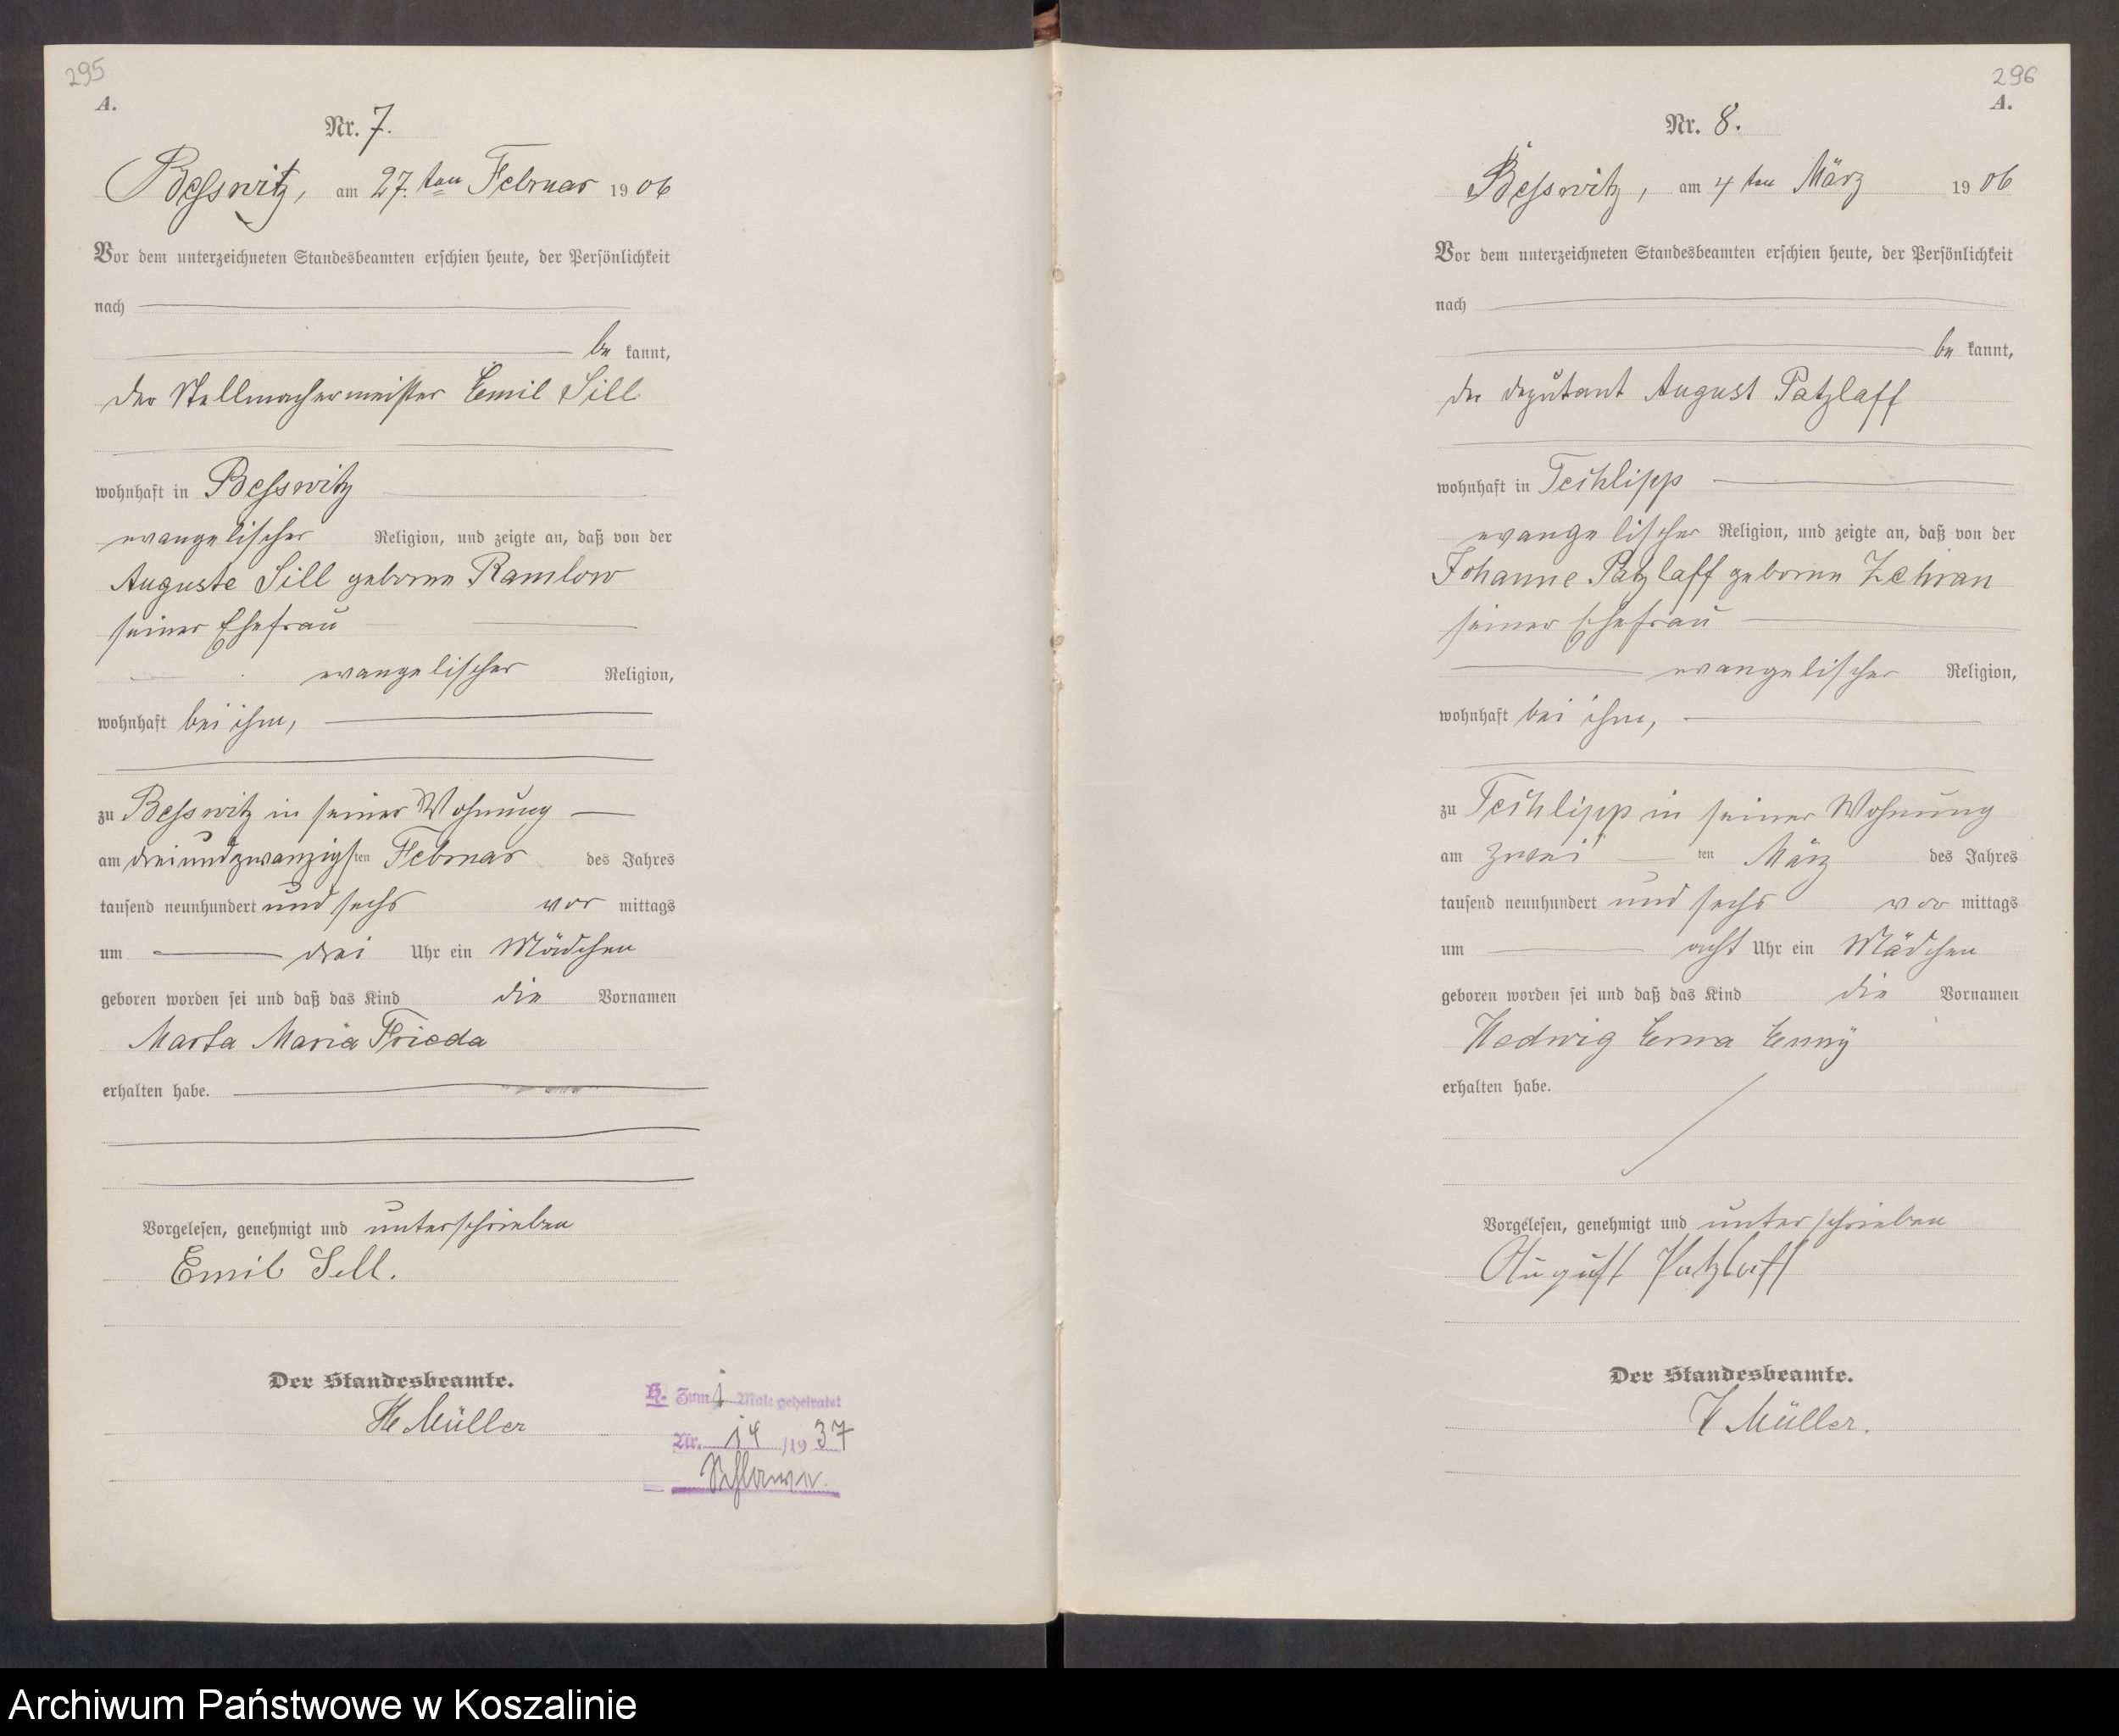 295
A.
Nr. 7.
Besswitz, am 27. ten Februar 1906
Vor dem unterzeichneten Standesbeamten erschien heute, der Persönlichkeit
nach
be kannt,
der Stellmachermeister Emil Sill
wohnhaft in Besswitz
evangelischer Religion, und zeigte an, daß von der
Auguste Sill geborne Ramlow
seiner Ehefrau
evangelischer Religion,
wohnhaft bei ihm,
zu Besswitz in seiner Wohnung
am dreiundzwanzigsten Februar des Jahres
tausend neunhundert und sechs vor mittags
um drei Uhr ein Mädchen
geboren worden sei und daß das Kind die Vornamen
Marta Maria Frieda
erhalten habe.
Vorgelesen, genehmigt und unterschrieben
Emil Sell.
Der Standesbeamte.
H Müller
H. Zum 1 Male geheiratet
Nr. 14 /1937
Schlawe.
296
A.
Nr. 8.
Besswitz, am 4 ten März 1906
Vor dem unterzeichneten Standesbeamten erschien heute, der Persönlichkeit
nach
be kannt,
der Deputant August Patzlaff
wohnhaft in Techlipp
evangelischer Religion, und zeigte an, daß von der
Johanne Patzlaff geborne
seiner Ehefrau
evangelischer Religion,
wohnhaft bei ihm,
zu Techlipp in seiner Wohnung
am zwei ten März des Jahres
tausend neunhundert und sechs vor mittags
um acht Uhr ein Mädchen
geboren worden sei und daß das Kind die Vornamen
Hedwig Erna Enny
erhalten habe.
Vorgelesen, genehmigt und unterschrieben
August Patzlaff
Der Standesbeamte.
H Müller.
Archiwum Państwowe w Koszalinie